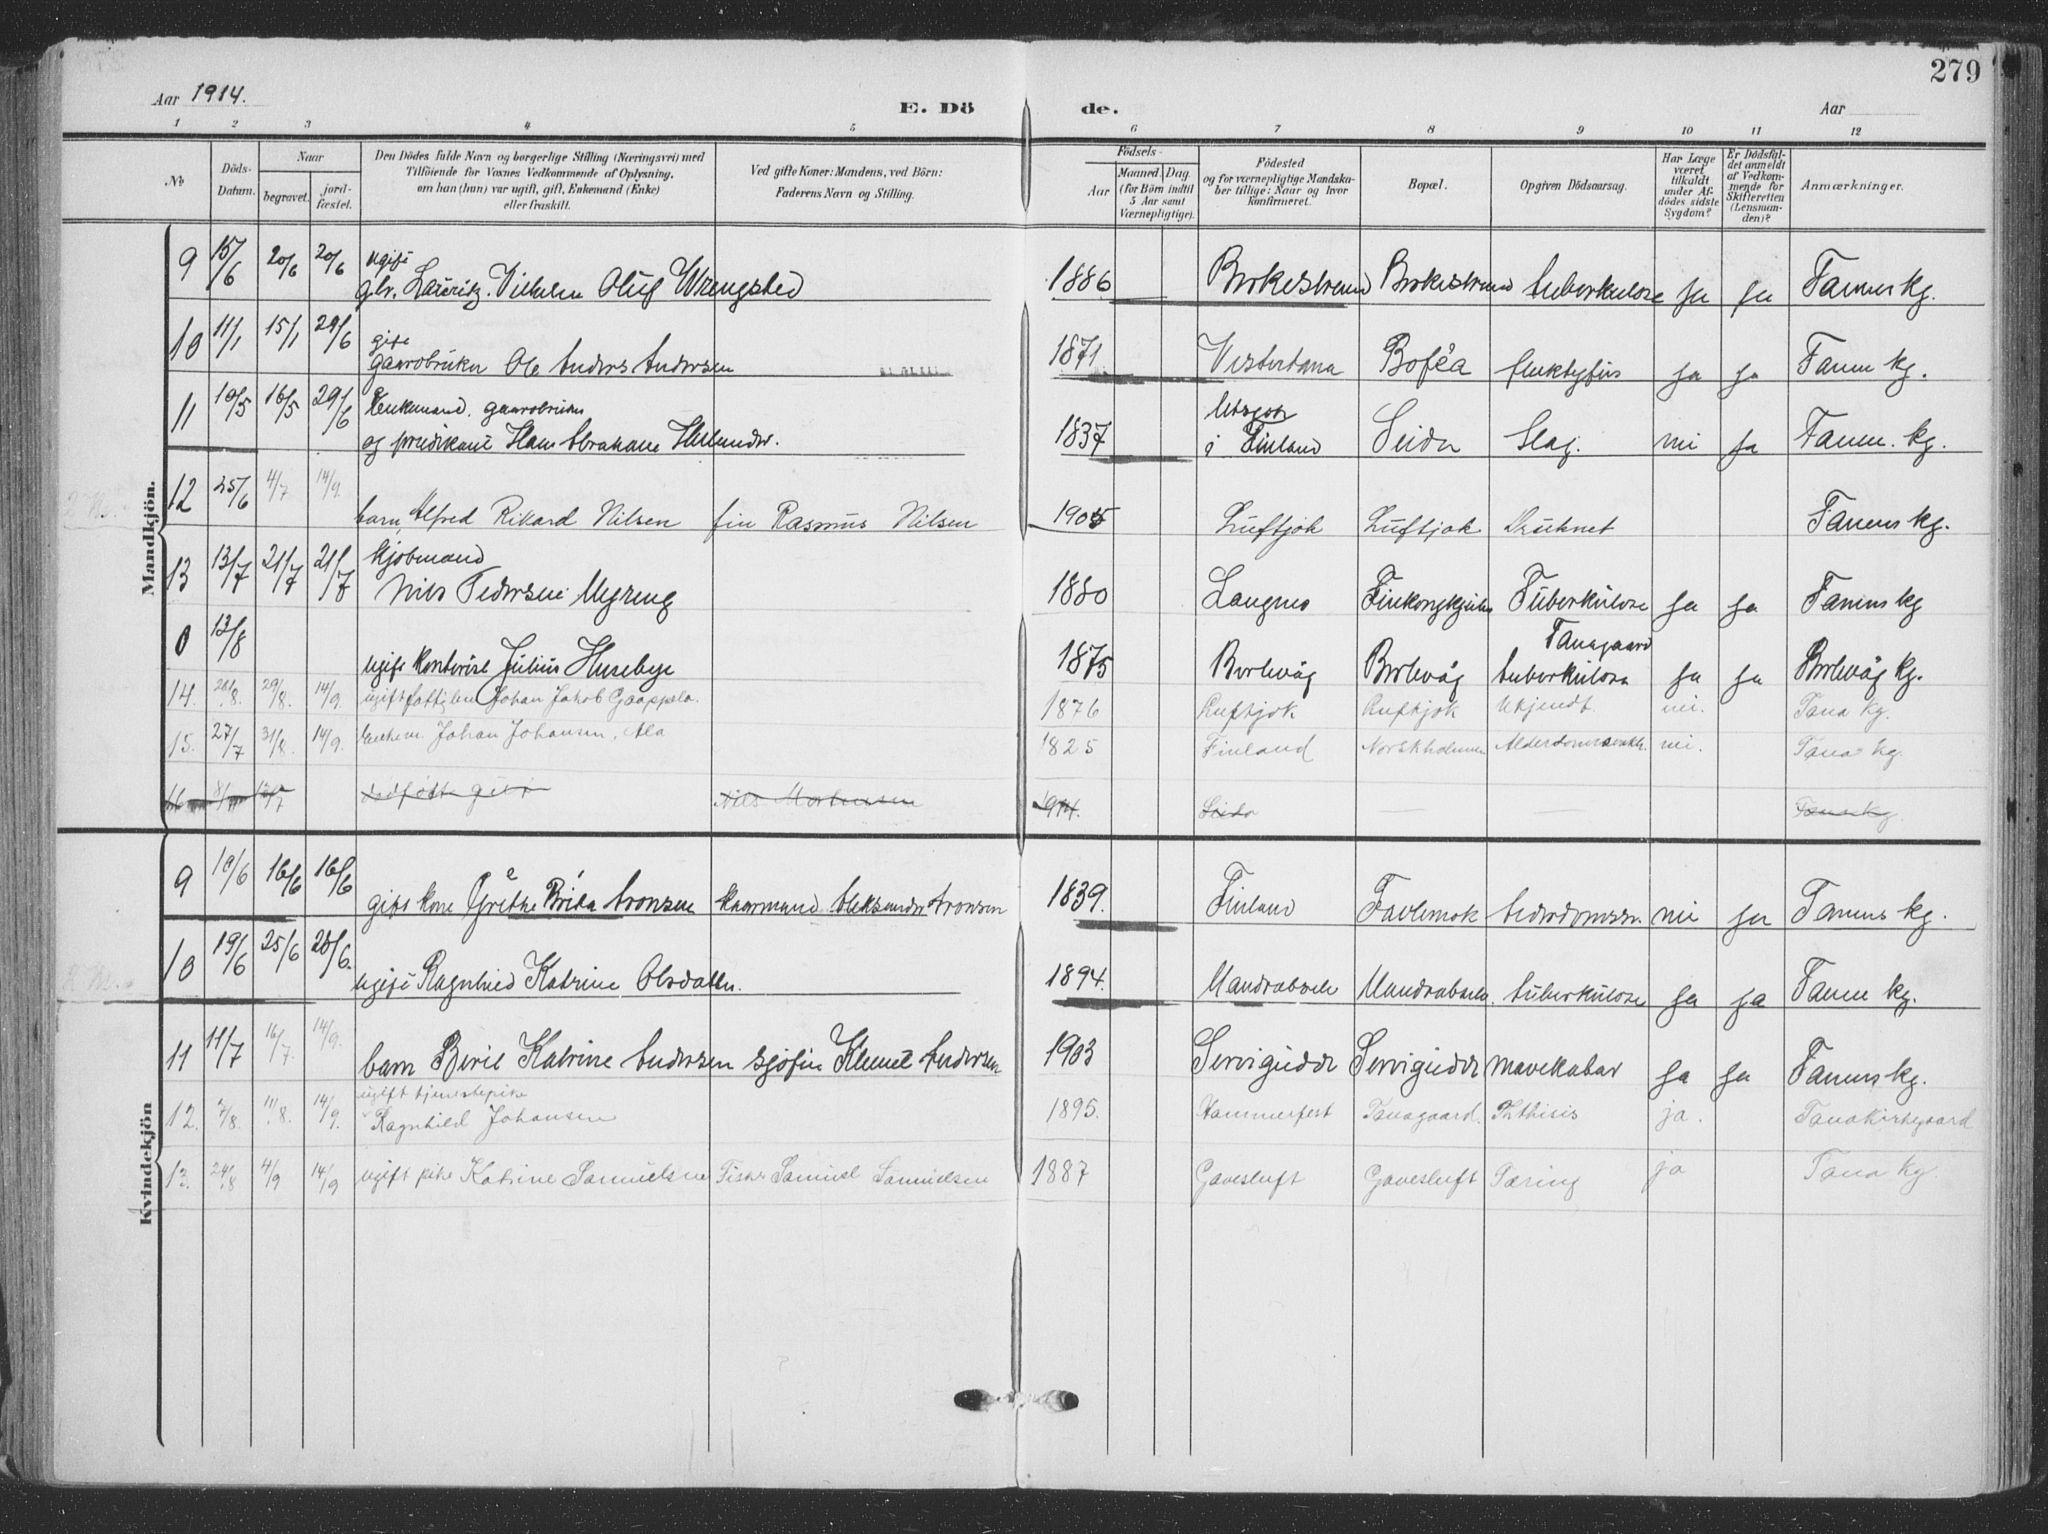 279
Aar 1914.
E. Dö de.
Aar
1 2 3 4 5 6 7 8 9 10 11 12
No
Döds-Datum.
Naar
begravet.
jord-fæstet.
Den Dödes fulde Navn og borgerlige Stilling (Næringsvei) med
Tilföiende for Voxnes Vedkommende af Oplysning,
om han (hun) var ugift, gift, Enkemand (Enke)
eller fraskilt.
Ved gifte Koner: Mandens, ved Börn:
Faderens Navn og Stilling.
Födsels-
Aar
Maaned. Dag.
(for Börn indtil
5 Aar samt
Værnepligtige).
Födested
og for værnepligtige Mandska-
ber tillige: Naar og hvor
konfirmeret.
Bopæl.
Opgiven Dödsaarsag.
Har Læge
været
tilkaldt
under Af-
dödes sidste
Sygdom?
Er Dödsfal-
det anmeldt
af Vedkom-
mende for
Skifteretten
(Lensman-
den)?
Anmærkninger.
Mandkjön.
ugift
9 15/6 20/6 20/6 Vilhelm Oluf 1886 tuberkulose ja ja Tanens kg.
gift
10 11/1 15/1 29/6 gaardbruker Ole Anders Andersen 1871 Vestertana ja ja Tanen kg.
Enkemand. gaardbruker
11 10/5 16/5 29/6 og predikant Hans Abraham 1837 i Finland Seida Slag. nei ja Tanen. kg.
12 25/6 4/7 14/9. barn Alfred Rikard Nilsen fin Rasmus Nilsen 1905 Luftjok Luftjok Druknet Tanens kg.
Kjøbmand
13 13/7 21/7 21/7 Nils Pedersen 1880 Langnes Tuberkulose ja ja Tanens kg
0 13/8 ugift kontorist Julius Husebye 1875 Berlevåg Berlevåg tuberkulose ja ja Berlevåg kg.
Tanagaard
14. 29/8. 14/9. ugift Johan Jakob 1876 Luftjok Luftjok Ukjendt. nei. Tana kg.
15. 27/7 31/8. 14/9. Johan Johansen, Ala 1825 Finland Norskholmen nei. Tana kg.
16 dødfødt gut Nils Mortensen 1914. Seida Tanens kg.
Kvindekjön
9 10/6 16/6 16/6 gift kone Grethe Brita Aronsen Aleksander Aronsen 1839. Finland nei ja Tanens kg.
10 19/6 25/6 28/6. ugift Ragnhild Katrine Olsdatter. 1894. tuberkulose ja ja Tanen kg.
11 11/7 16/7. 14/9. barn Berit Katrine Andersen sjøfin Klemet Andersen 1903 mavekatar ja ja Tanens kg.
ugift tjenestepike
12. 7/8. 11/8. 14/9. Ragnhild Johansen 1895. Hammerfest Tanagaard. Phthisis ja. Tana kirkegaard
13. 24/8 4/9 14/9 ugift pike Katrine Samuelsen Fisker Samuel Samuelsen 1887 Gavesluft Gavesluft Tæring ja Tana kg.